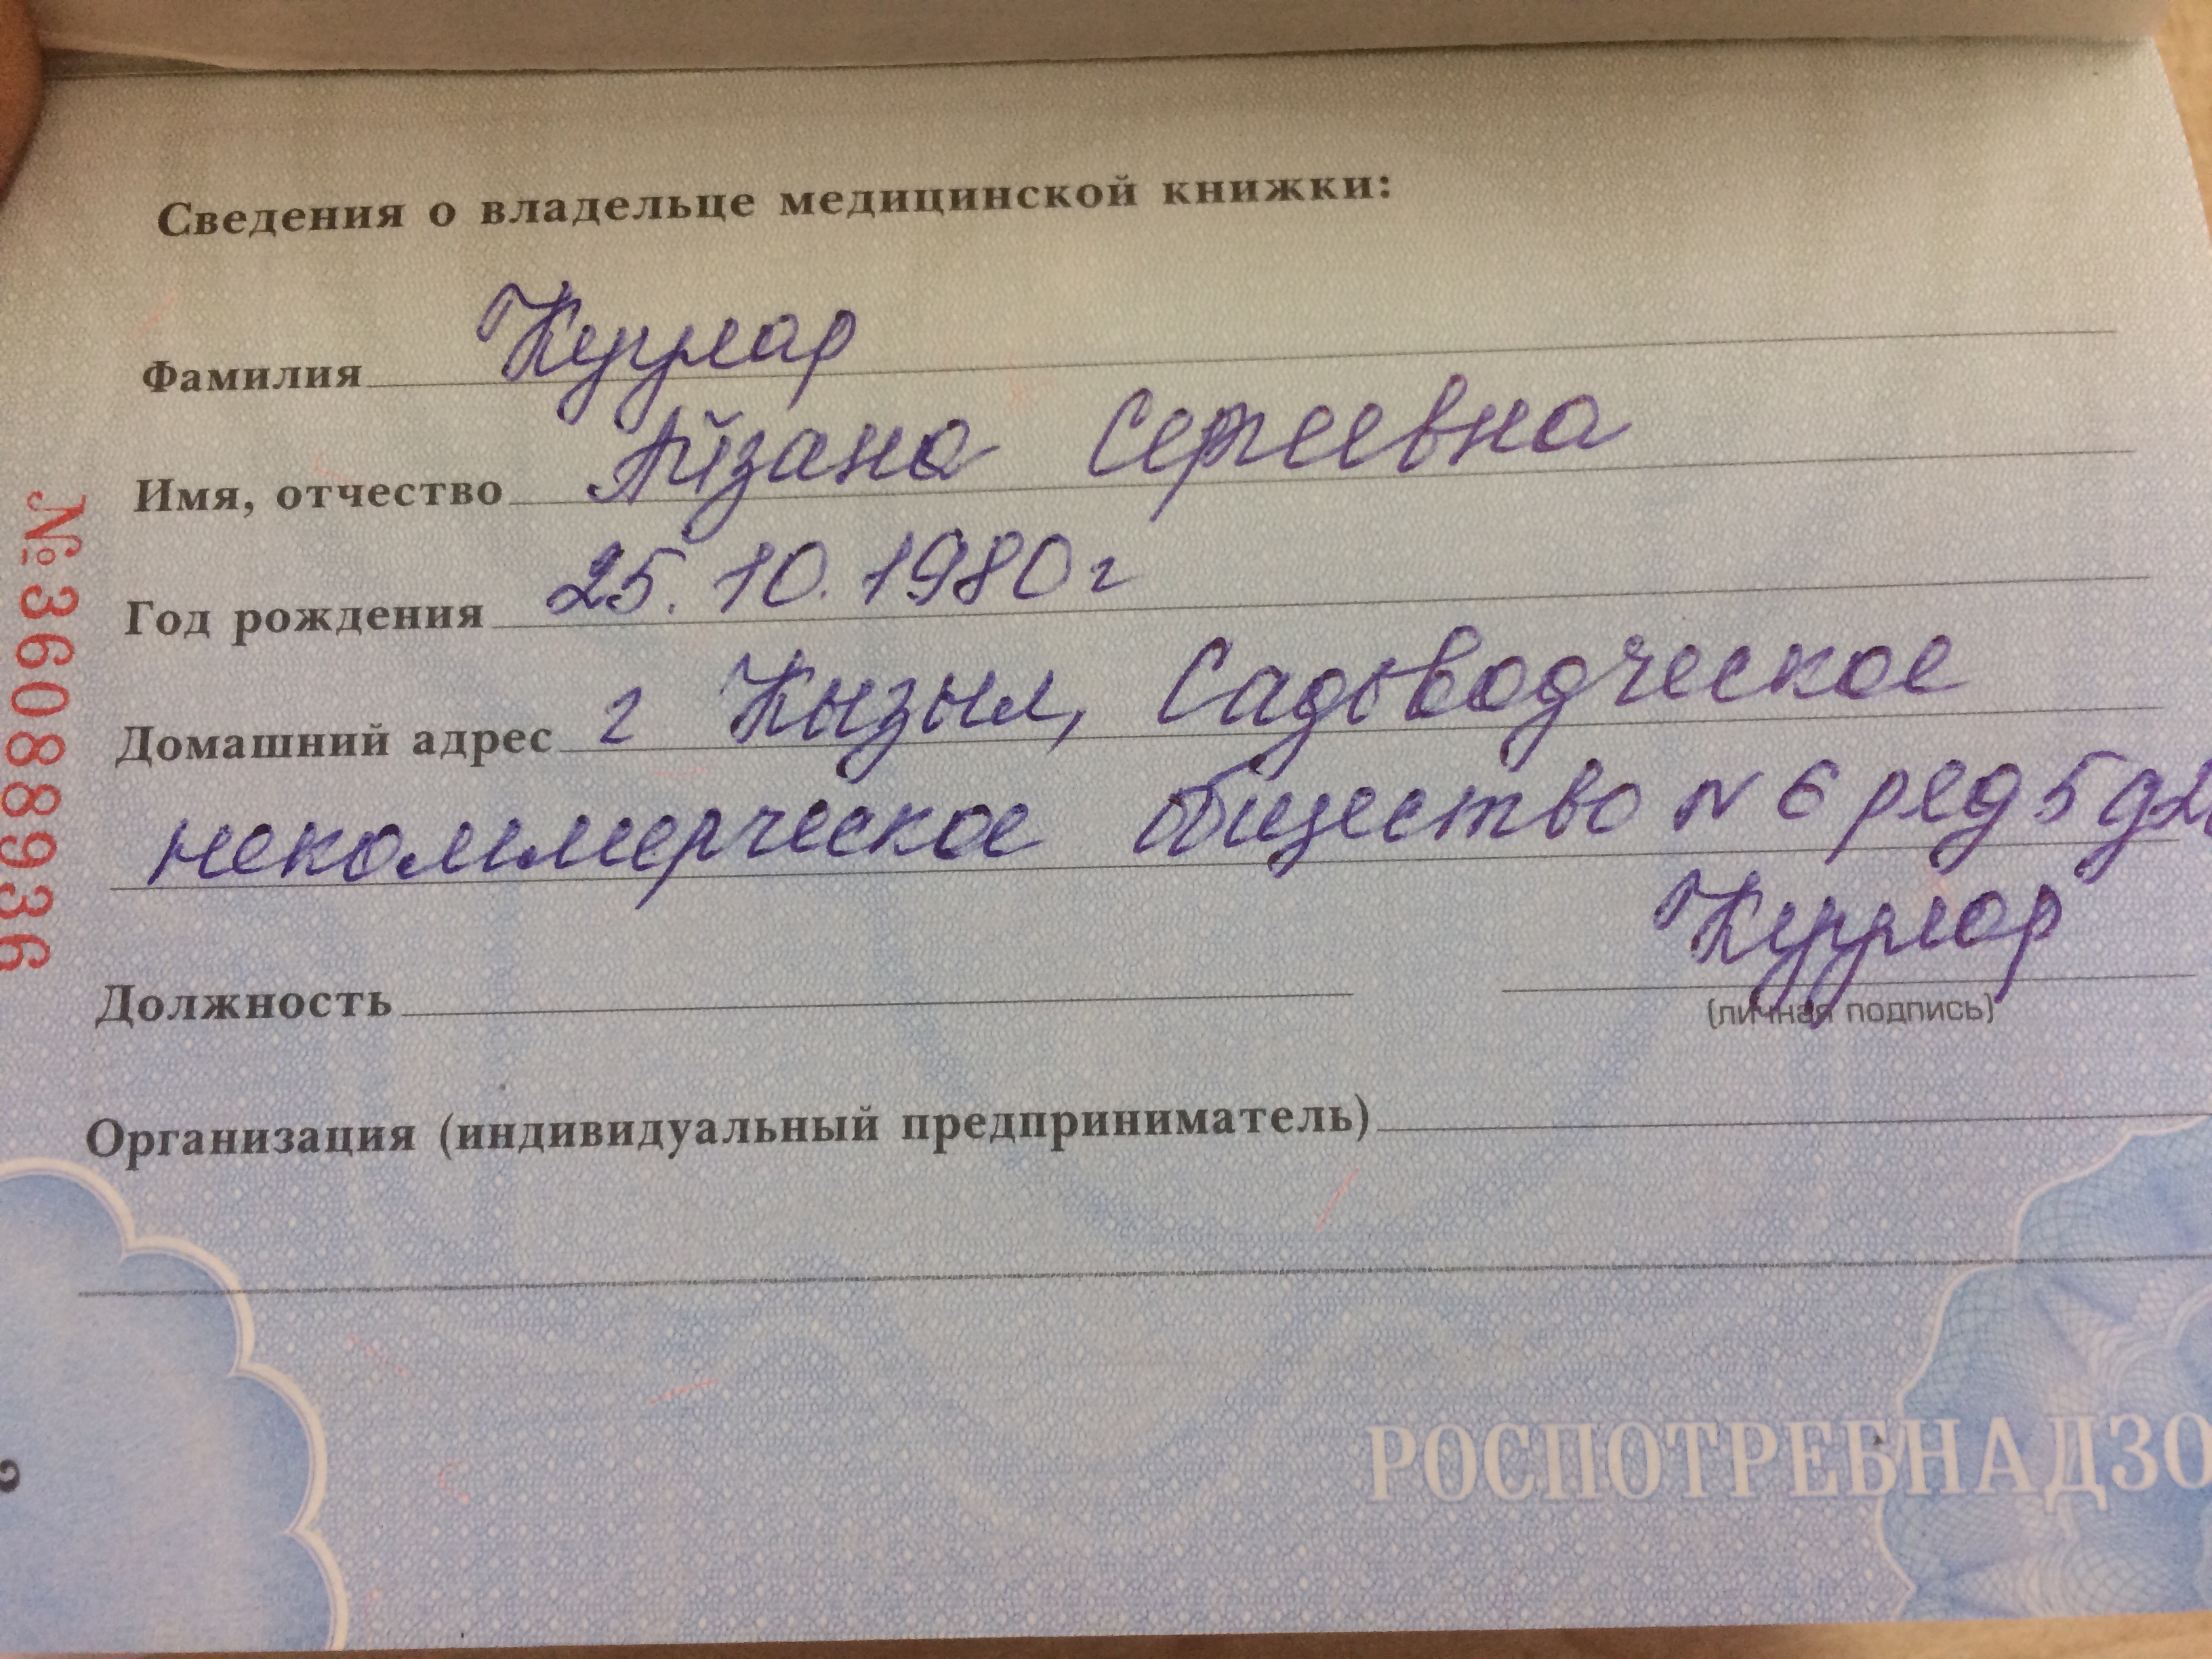 Сведения о владельце медицинской книжки:
Фамилия Куулар
Имя, отчество Айзана Сергеевна
Год рождения 25.10.1980г
Домашний адрес г Кызыл, Садоводческое
некоммерческое общество N 6 ряд 5 д
Куулар
Должность
(личная подпись)
Организация (индивидуальный предприниматель)
РОСПОТРЕБНАДЗО
№36088936